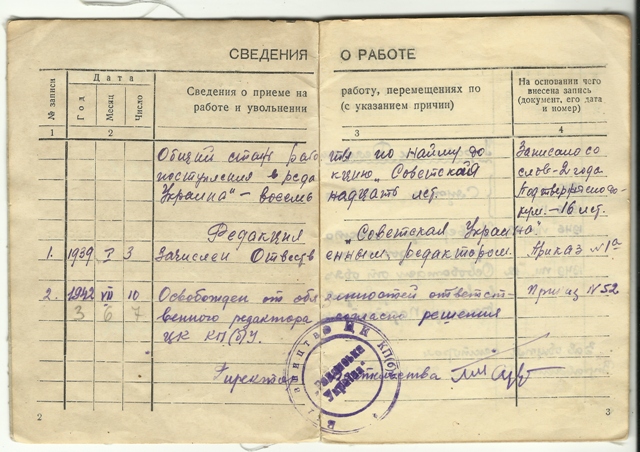 СВЕДЕНИЯ О РАБОТЕ
№ записи
Дата
Год
Месяц
Число
Сведения о приеме на работу, перемещениях по
работе и увольнении (с указанием причин)
На основании чего
внесена запись
(документ, его дата
и номер)
1 2 3 4
Общий стаж работы по найму до
поступления в редакцию „Советская
Украина“ – восемнадцать лет.
Записано со
слов – 2 года.
Подтверждено док
ум. – 16 лет.
Редакция „Советская Украина“
1. 1939 I 3 Зачислен Ответственным редактором. Приказ № 1а
2. 1942 VII 10 Освобожден от обязанностей ответст- Приказ № 52
3 6 7 венного редактора согласно решения
ЦК КП(б)У.
Директор издательства
"Радянська
Україна"
ЦК КП(б)
2
3